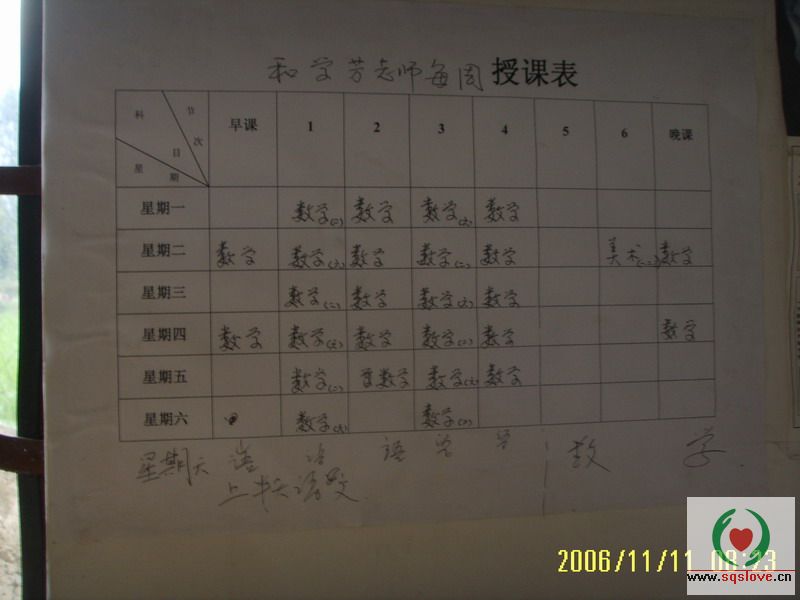 和学芳老师每周 授课表
科 节 次 目 星 期 早课 1 2 3 4 5 6 晚课
星期一 数学(二) 数学 数学(六) 数学
星期二 数学 数学(六) 数学 数学(二) 数学 美术(二) 数学
星期三 数学(二) 数学 数学(六) 数学
星期四 数学 数学(六) 数学 数学(二) 数学 数学
星期五 数学(二) 数学 数学(六) 数学
星期六 数学(六) 数学(二)
星期天 语 数 学
上半天语文
2006/11/11 08:23
www.sqslove.cn